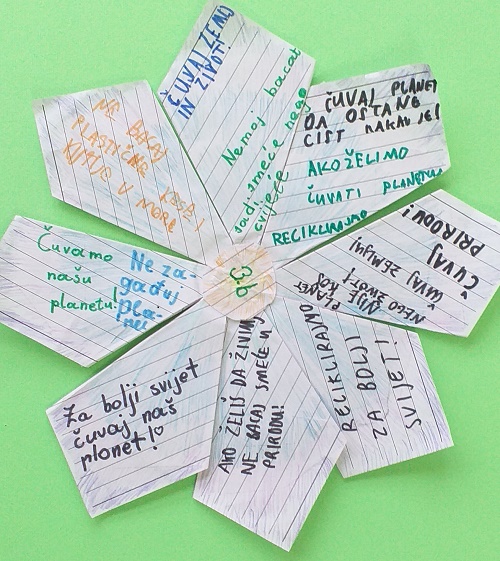 ČUVAJ ZEMJ
IN ŽIVOT!
Nemoj bacat
sadi smeće nego
cvijeće
ČUVAJ PLANET
DA OSTANE
ČIST KAKAV JE!
AKO ŽELIMO
ČUVATI PLANETU
RECIKLIRAJMO
ČUVAJ
PRIRODU!
ČUVAJ ZEMJNJ
NEGO ŽIVOT!
NIJE KOŠ
PLANET
RECIKLIRAJMO
ZA BOLJI
SVIJET!
AKO ŽELIŠ DA ŽIVIM
NE BACAJ SMEĆE U
PRIRODU!
Za bolji svijet
čuvaj naš
planet!
Čuvamo
našu
planetu!
Ne za-
gađuj
pla-
net
NE BACAJ
PLASTIČNE
U MORE
3b